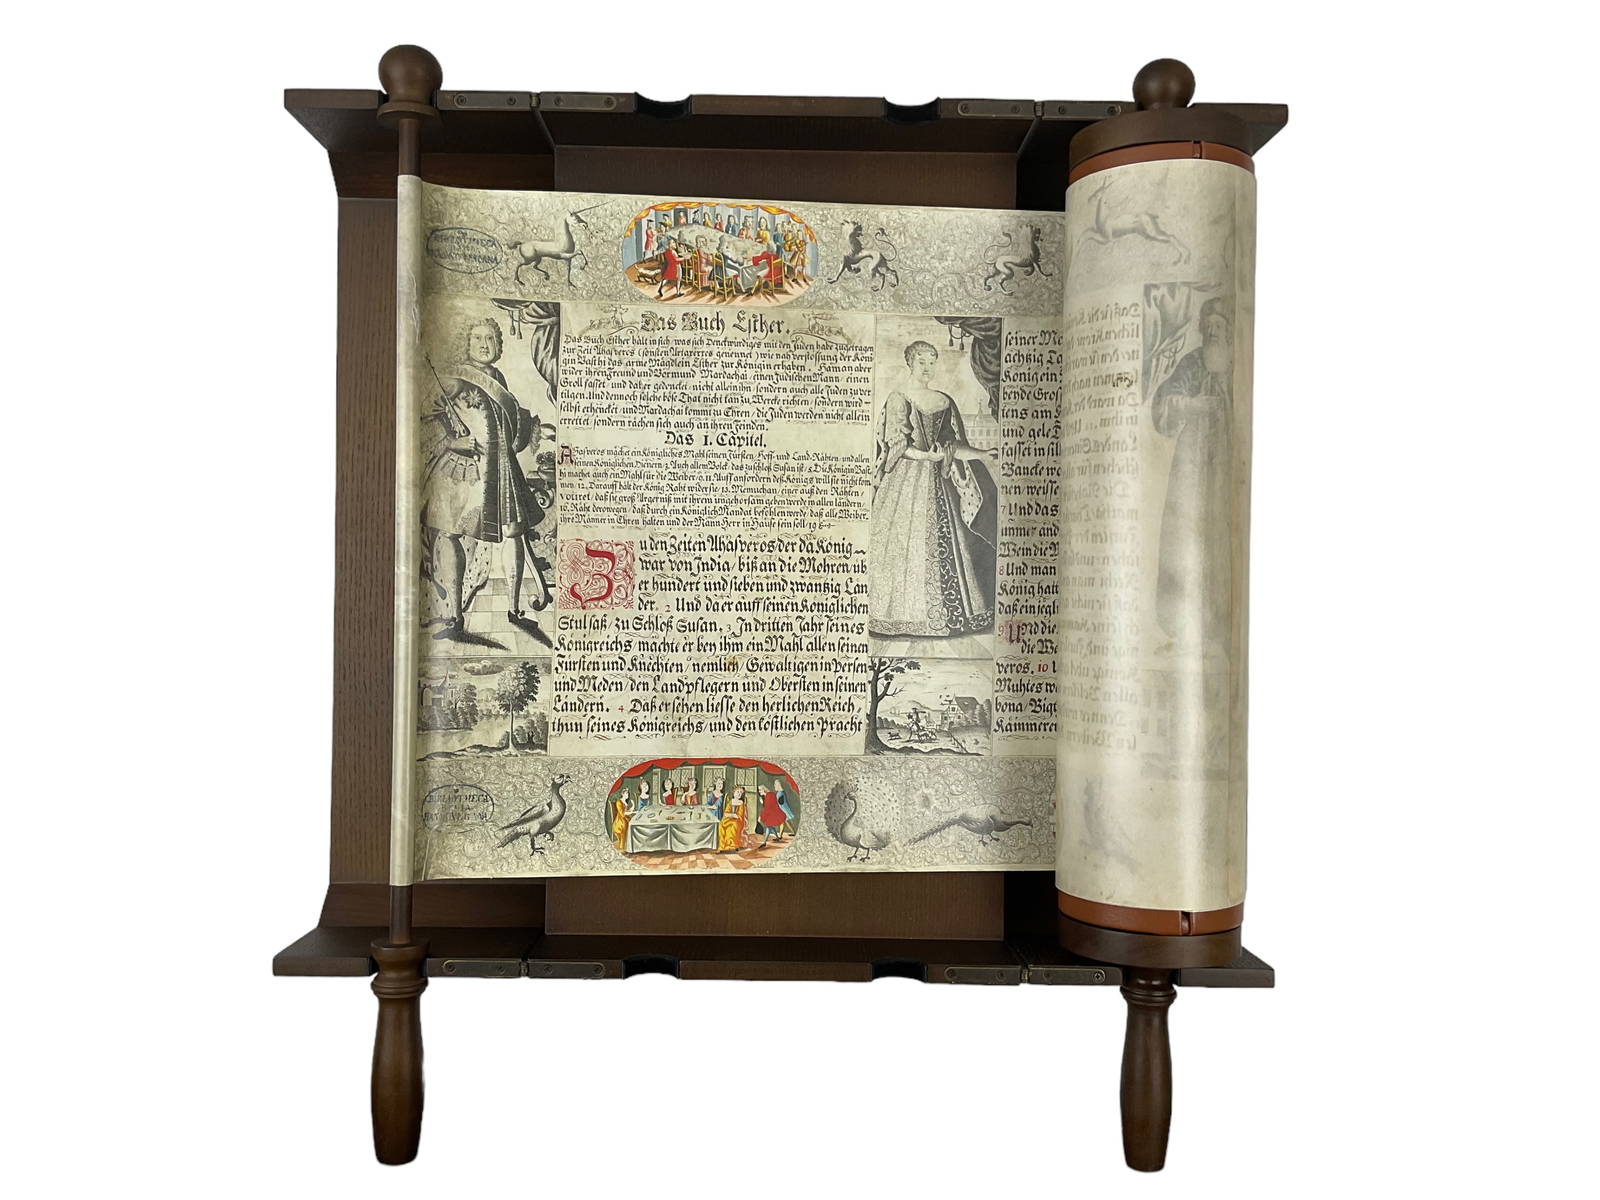 BIBLIOTHECA
REGIA
HANNOVERANA
Das Buch Esther.
Das Buch Esther hält in sich, was sich Denckwürdiges mit den Juden habe zugetragen
zur Zeit Ahasveros (sonsten Artaxerxes genennet) wie nah verstossung der Köni
gin Vasthi das arme Mägdlein Esther zur Königin erhaben. Haman aber
wider ihren freund und Vormund Mardachai / einen Jüdischen Mann / einen
Groll fasset / und daher gedencket / nicht allein ihn / sondern auch alle Juden zu ver
tilgen. Und dennoch solche böse That nicht kan zu Wercke richten / sondern wird
selbst erhencket / und Mardachai kommt zu Ehren / die Juden werden nicht allein
errettet / sondern rächen sich auch an ihren feinden.
Das 1. Capitel.
Ahasveros machet ein Königliches Mahl seinen fürsten / Hoff- und Land-Rähten / und allen
seinen Königlichen Dienern. 5. Auch allem Volck / das zu schloß Susan ist / 8. Die Königin Vast,
hi machet auch ein Mahl für die Weiber / 9. 11. Auff anfordern deß Königs will sie nicht kom
men / 12. Darauff hält der König Raht wider sie / 13. Memuchan / einer auß den Rähten /
votiret / daß sie groß Ärgerniß mit ihrem ungehorsam geben werde in allen ländern /
16. Räht derowegen / daß durch ein Königlich Mandat befohlen werde / daß alle Weiber
ihre Männer in Ehren halten und der Mann Herr in Hause sein soll / 19
Zu den Zeiten Ahasveros / der da König
war von India / biß an die Mohren / üb
er hundert und sieben und zwantzig Län
der. 2 Und da er auff seinen Königlichen
Stul saß / zu Schloß Susan. 3 In dritten Jahr seines
Königreichs / machte er bey ihm ein Mahl allen seinen
Fürsten und Knechten / nemlich / Gewaltigen in Persen
und Meden / den Landpflegern und Obersten in seinen
Ländern. 4 Daß er sehen liesse den herlichen Reich,
thun seines Königreichs / und den köstlichen Pracht
seiner Ma
achtzig Ta
König ein
beyde Gros
tens am
und gele
fasset in sil
Bäncke we
nen / weisse
7 Und das
immer and
Wein die M
8 Und man
König hatt
daß ein jegl
9 Und die
die We
veros. 10
Muhtes w
bona / Bigt
Kämmerer
BIBLIOTHECA
REGIA
HANNOVERANA